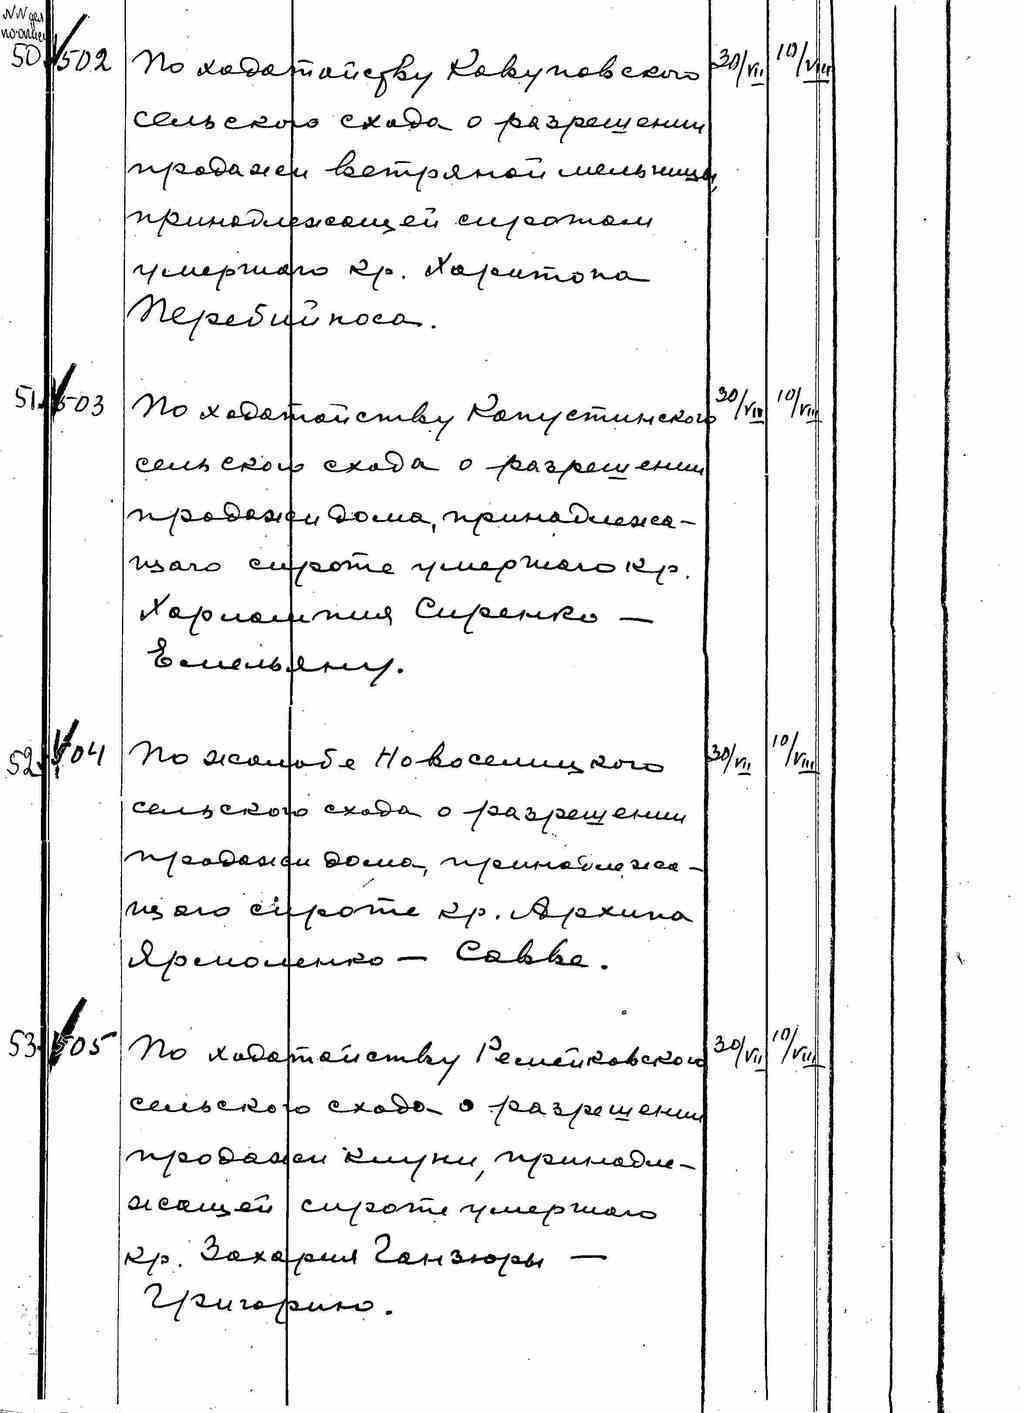 NN дел
по описи
50 502 По ходатайству Ковуновского 30/VII 10/VIII
сельского схода о разрешении
продажи ветряной мельницы,
принадлежащей сиротам
умершаго кр. Харитона
Перебийноса.
51 503 По ходатайству Капустинского 30/VII 10/VIII
сельского схода о разрешении
продажи дома, принадлежа-
щаго сироте умершаго кр.
Харлампия Сиренко —
Емельяну.
52 504 По жалобе Новоселицкого 30/VII 10/VIII
сельского схода о разрешении
продажи дома, принадлежа-
щаго сироте кр. Архипа
Ярмоленко — Савве.
53 505 По ходатайству Ремейковского 30/VII 10/VIII
сельского схода о разрешении
продажи клуни, принадле-
жащей сироте умершаго
кр. Захария Ганзюры —
Григорию.